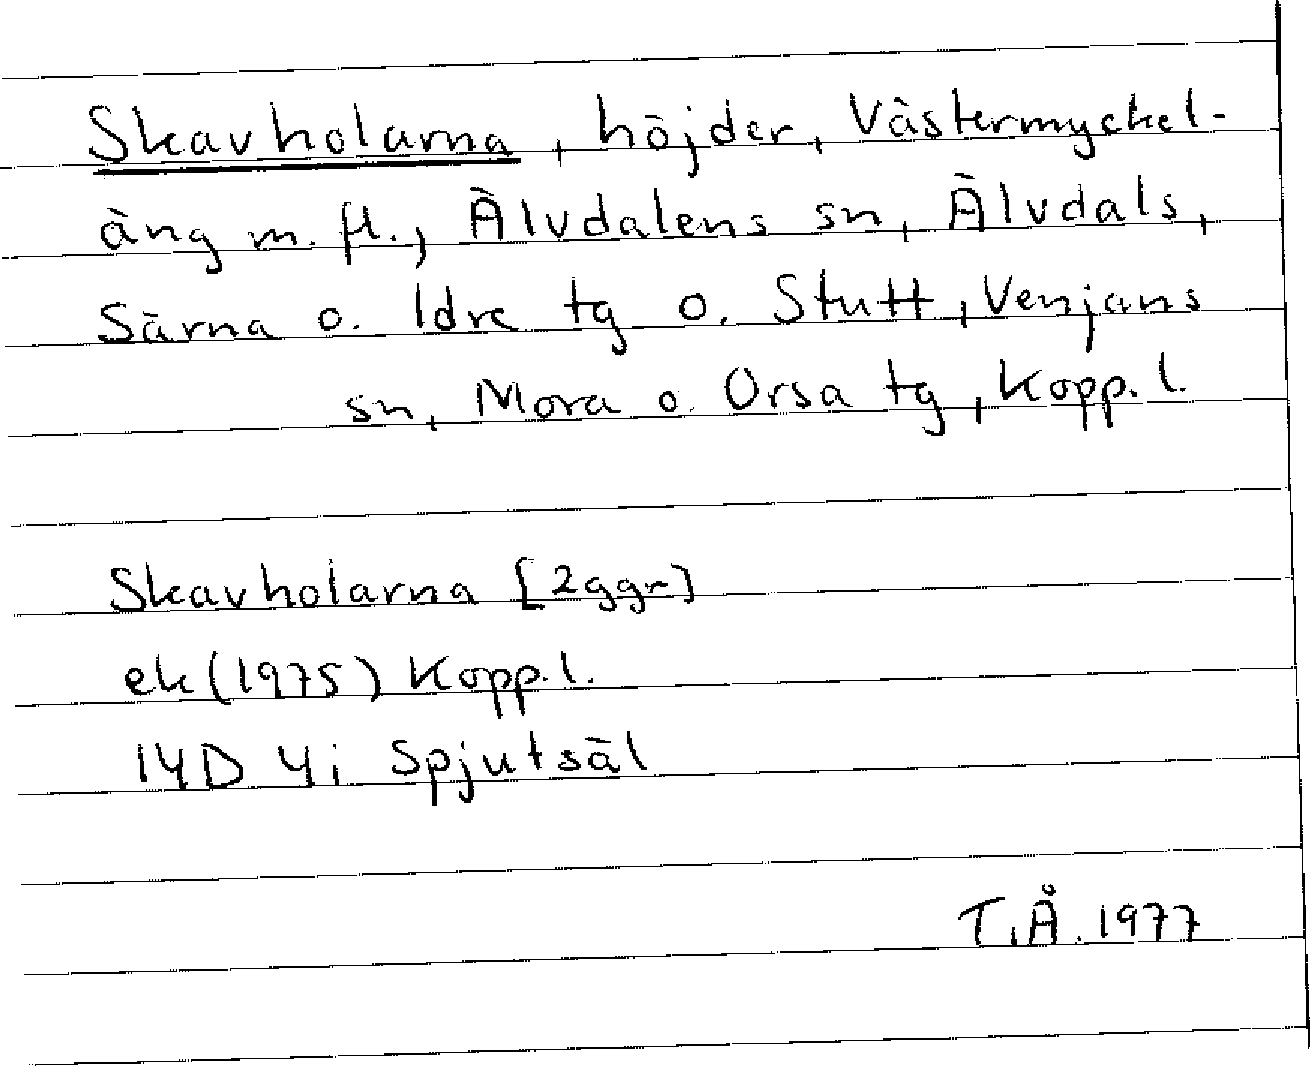 Skavholarna, höjder, Västermyckel-
äng m. fl., Älvdalens sn, Älvdals,
Särna o. Idre tg o. Stutt, Venjans
sn, Mora o. Orsa tg, Kopp. l.
Skavholarna [2ggr]
ek (1975) Kopp. l.
14D 4i Spjutsäl
T.Å. 1977